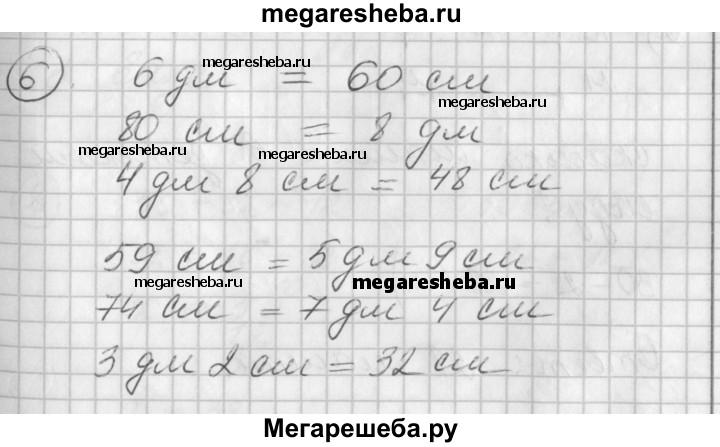 megaresheba.ru
megaresheba.ru
6. 6 дм = 60 см
megaresheba.ru
80 см = 8 дм
megaresheba.ru megaresheba.ru
4 дм 8 см = 48 см
59 см = 5 дм 9 см
megaresheba.ru megaresheba.ru
74 см = 7 дм 4 см
3 дм 2 см = 32 см
Мегарешеба.ру